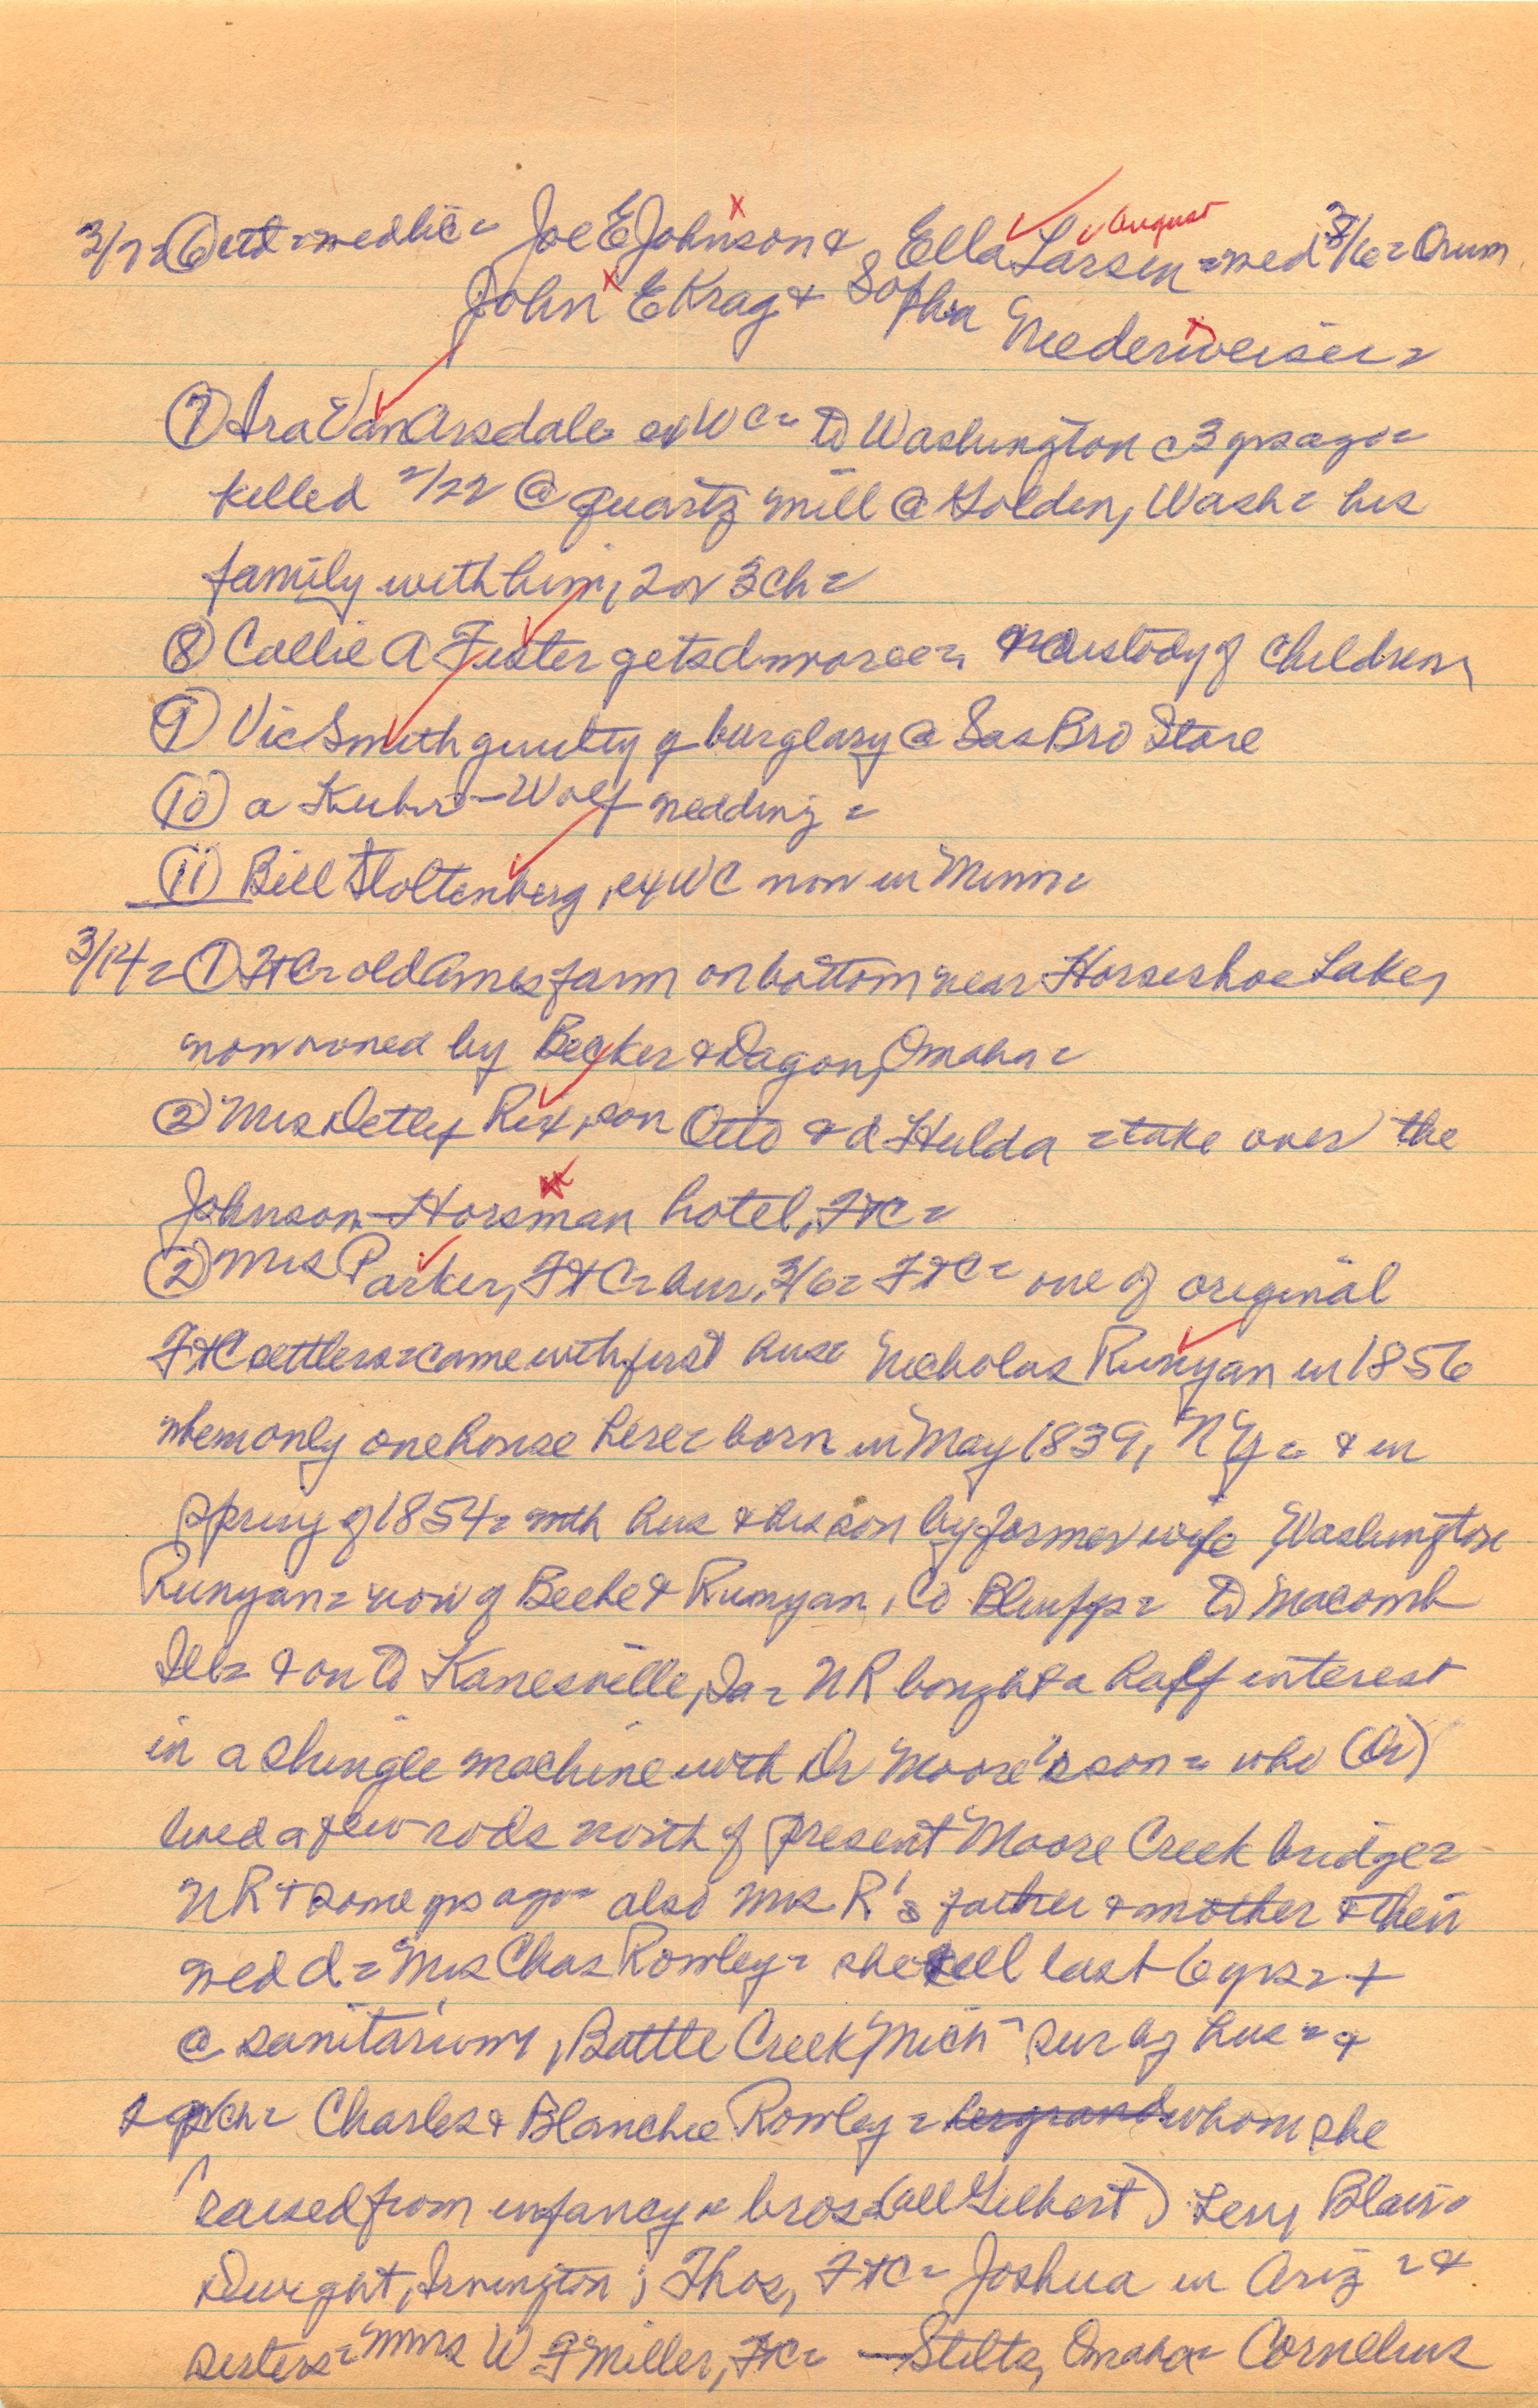 3/7 = ⑥ctd = wed lic = Joe E Johnson & Ella Larsen = wed 3/6 = Orum
August
John E Krag & Sophia Niederweiser =
⑦ Ira Van Arsdale ex WC = to Washington c3 yrs ago =
killed 2/22 @ quartz mill @ Golden, Wash = his
family with him, 2 or 3 ch =
⑧ Callie A Fuster gets divorce = & custody of children
⑨ Vic Smith guilty of burglary @ Sas Bro Store
⑩ a Kuhr-Wolf wedding =
⑪ Bill Stoltenberg, ex WC now in Minn =
3/14 = ① FtC = old Ames farm on bottom near Horseshoe Lake,
now owned by Becker & Dagon, Omaha =
② Mrs Detlef Rix, son Otto & d Hulda = take over the
Johnson-Horsman hotel, FtC =
② Mrs Parker, FtC = bur, 3/6 = FtC = one of original
FtC settlers = came with first hus = Nicholas Runyan in 1856
when only one house here = born in May 1839, NY = & in
spring of 1854 = with hus & his son by former wife Washington
Runyan = now of Beebe & Runyan, Co Bluffs = to Macomb
Ill = & on to Kanesville, Ia = NR bought a half interest
in a shingle machine with Dr Moore's son = who (Dr)
lived a few rods north of present Moore Creek bridge =
NR + some yrs ago = also Mrs R's father & mother & their
wed d = Mrs Chas Rowley = she ill last 6 yrs = +
@ sanitarium, Battle Creek, Mich = sur by hus = &
2 gch = Charles & Blanche Rowley = her grand whom she
raised from infancy & bros = (all Gilbert) Levy Blair =
Dwight, Irvington; Thos, FtC = Joshua in Ariz = &
sisters = Mmes W F Miller, FtC = — Stilts, Omaha = Cornelius